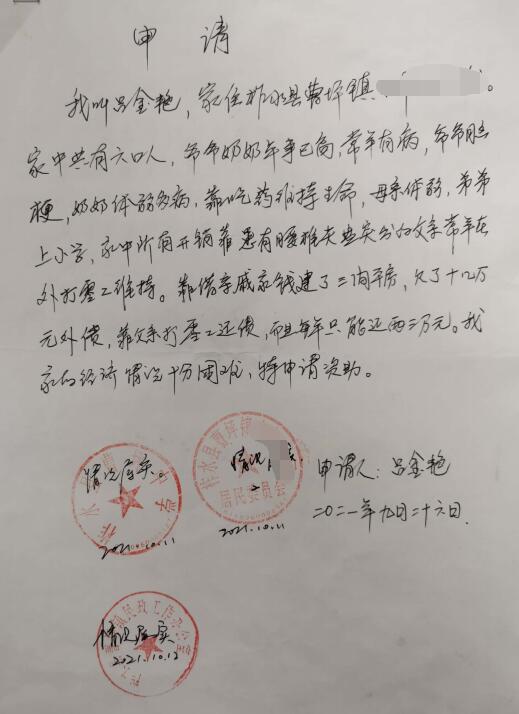 申 请
我叫吕金艳，家住柞水县曹坪镇
家中共有六口人，爷爷奶奶年事已高，常年有病，爷爷脑
梗，奶奶体弱多病，靠吃药维持生命，母亲体弱，弟弟
上小学，家中所有开销靠患有腰椎间盘突出的父亲常年在
外打零工维持。靠借亲戚家钱建了三间平房，欠了十几万
元外债，靠父亲打零工还债，而且每年只能还两三万元。我
家的经济情况十分困难，特申请资助。
情况属实。
情况 实.
柞水县曹坪镇
居民委员会
申请人：吕金艳
二〇二一年九月二十六日.
2021.10.11
2021.10.11
镇民政工作办公室
情况属实
2021.10.12